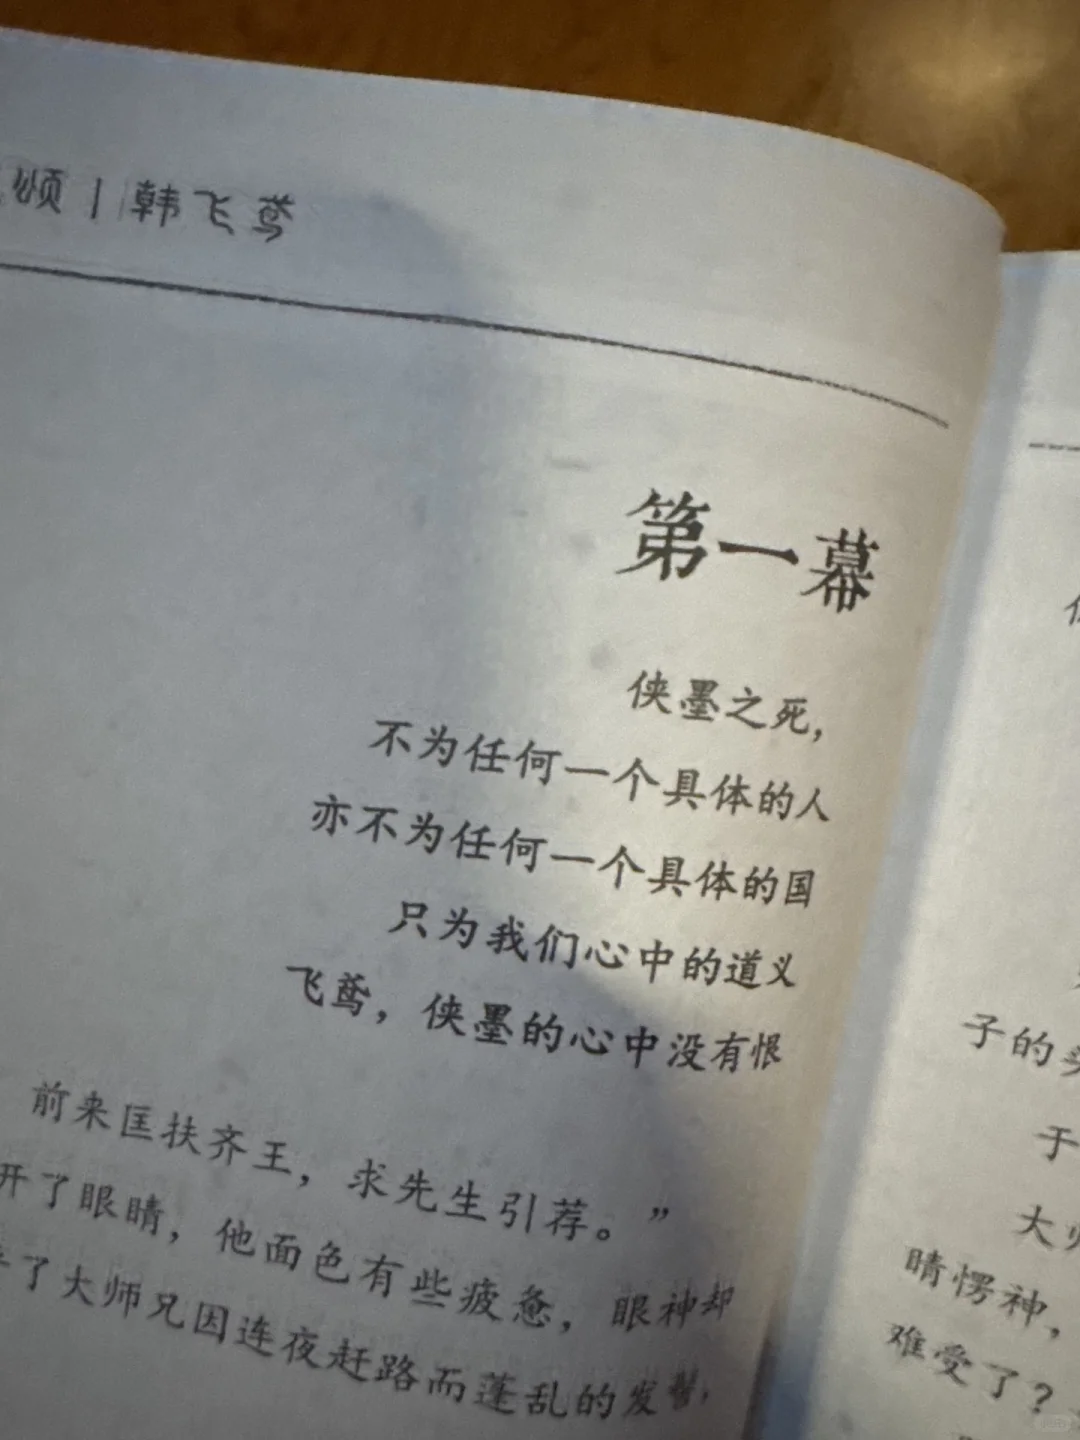 颂丨韩飞鸢
第一幕
侠墨之死，
不为任何一个具体的人
亦不为任何一个具体的国
只为我们心中的道义
飞鸢，侠墨的心中没有恨
前来匡扶齐王，求先生引荐。”
开了眼睛，他面色有些疲惫，眼神却
了大师兄因连夜赶路而蓬乱的发髻，
子的
于
大
睛愣神，
难受了？